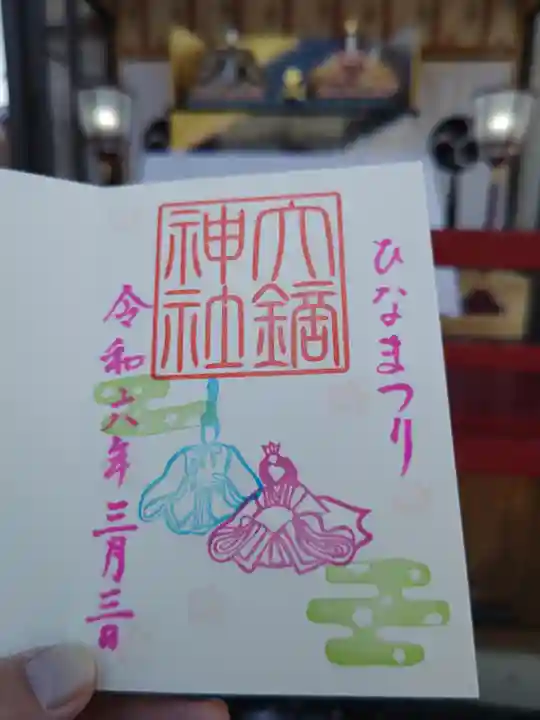 ひなまつり
六鏑
神社
令和六年三月三日